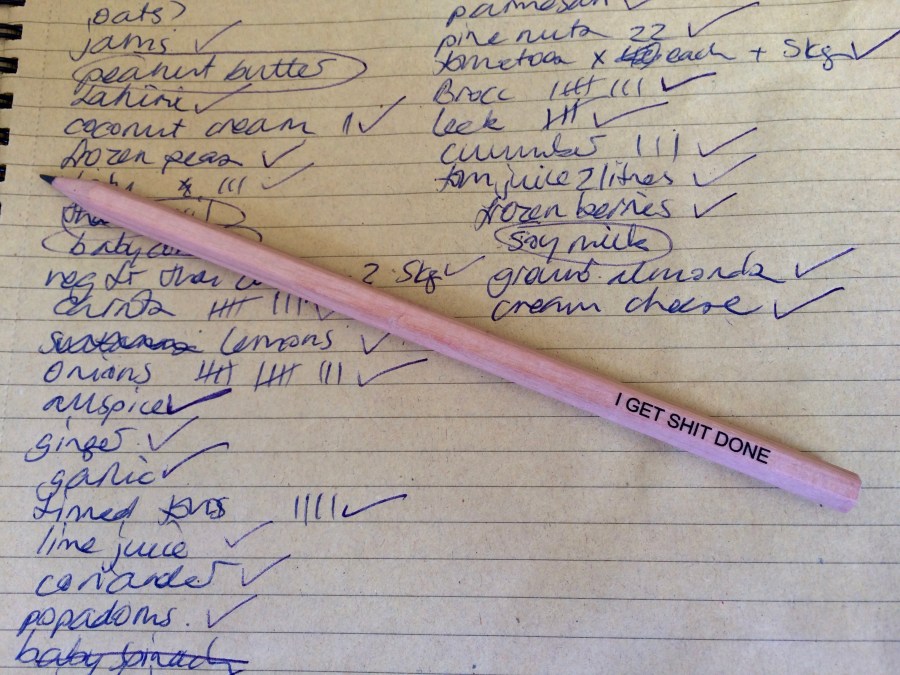 oats?
jams ✓
peanut butter
Tahini ✓
coconut cream 11 ✓
frozen peas ✓
111 ✓
baby
2.5kg ✓
Carrots 1111 111 ✓
lemons ✓
Onions 1111 1111 111 ✓
allspice ✓
ginger ✓
garlic ✓
tinned toms 1111 ✓
lime juice ✓
coriander ✓
popadoms. ✓
baby spinach
parmesan ✓
pine nuts 22 ✓
tometoes x each + 5kg ✓
Brocc 1111 111 ✓
leek ✓
cucumber 111 ✓
tom juice 2 litres ✓
frozen berries ✓
soy milk
ground almonds ✓
cream cheese ✓
I GET SHIT DONE